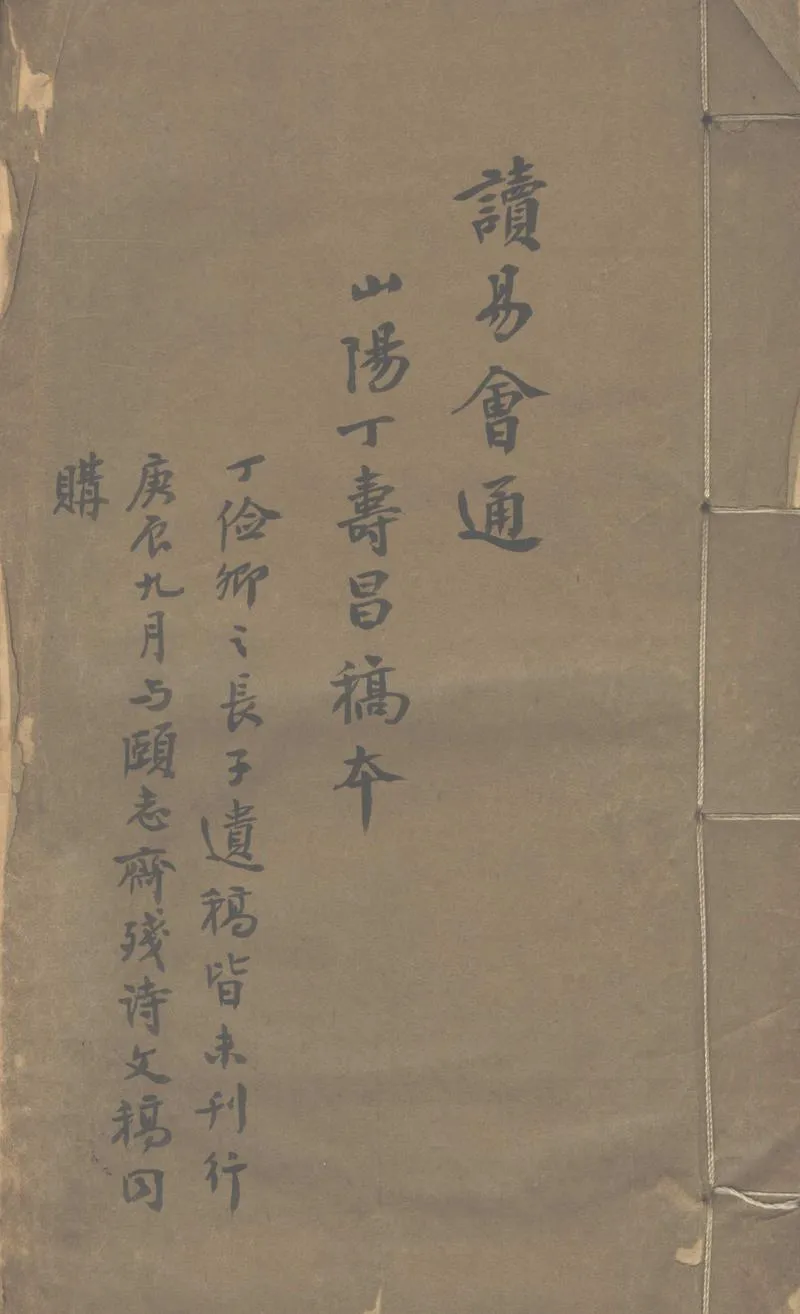 讀易會通
山陽丁壽昌稿本
丁俭卿之長子遺稿皆未刊行
庚辰九月与頤志齋殘诗文稿同
購